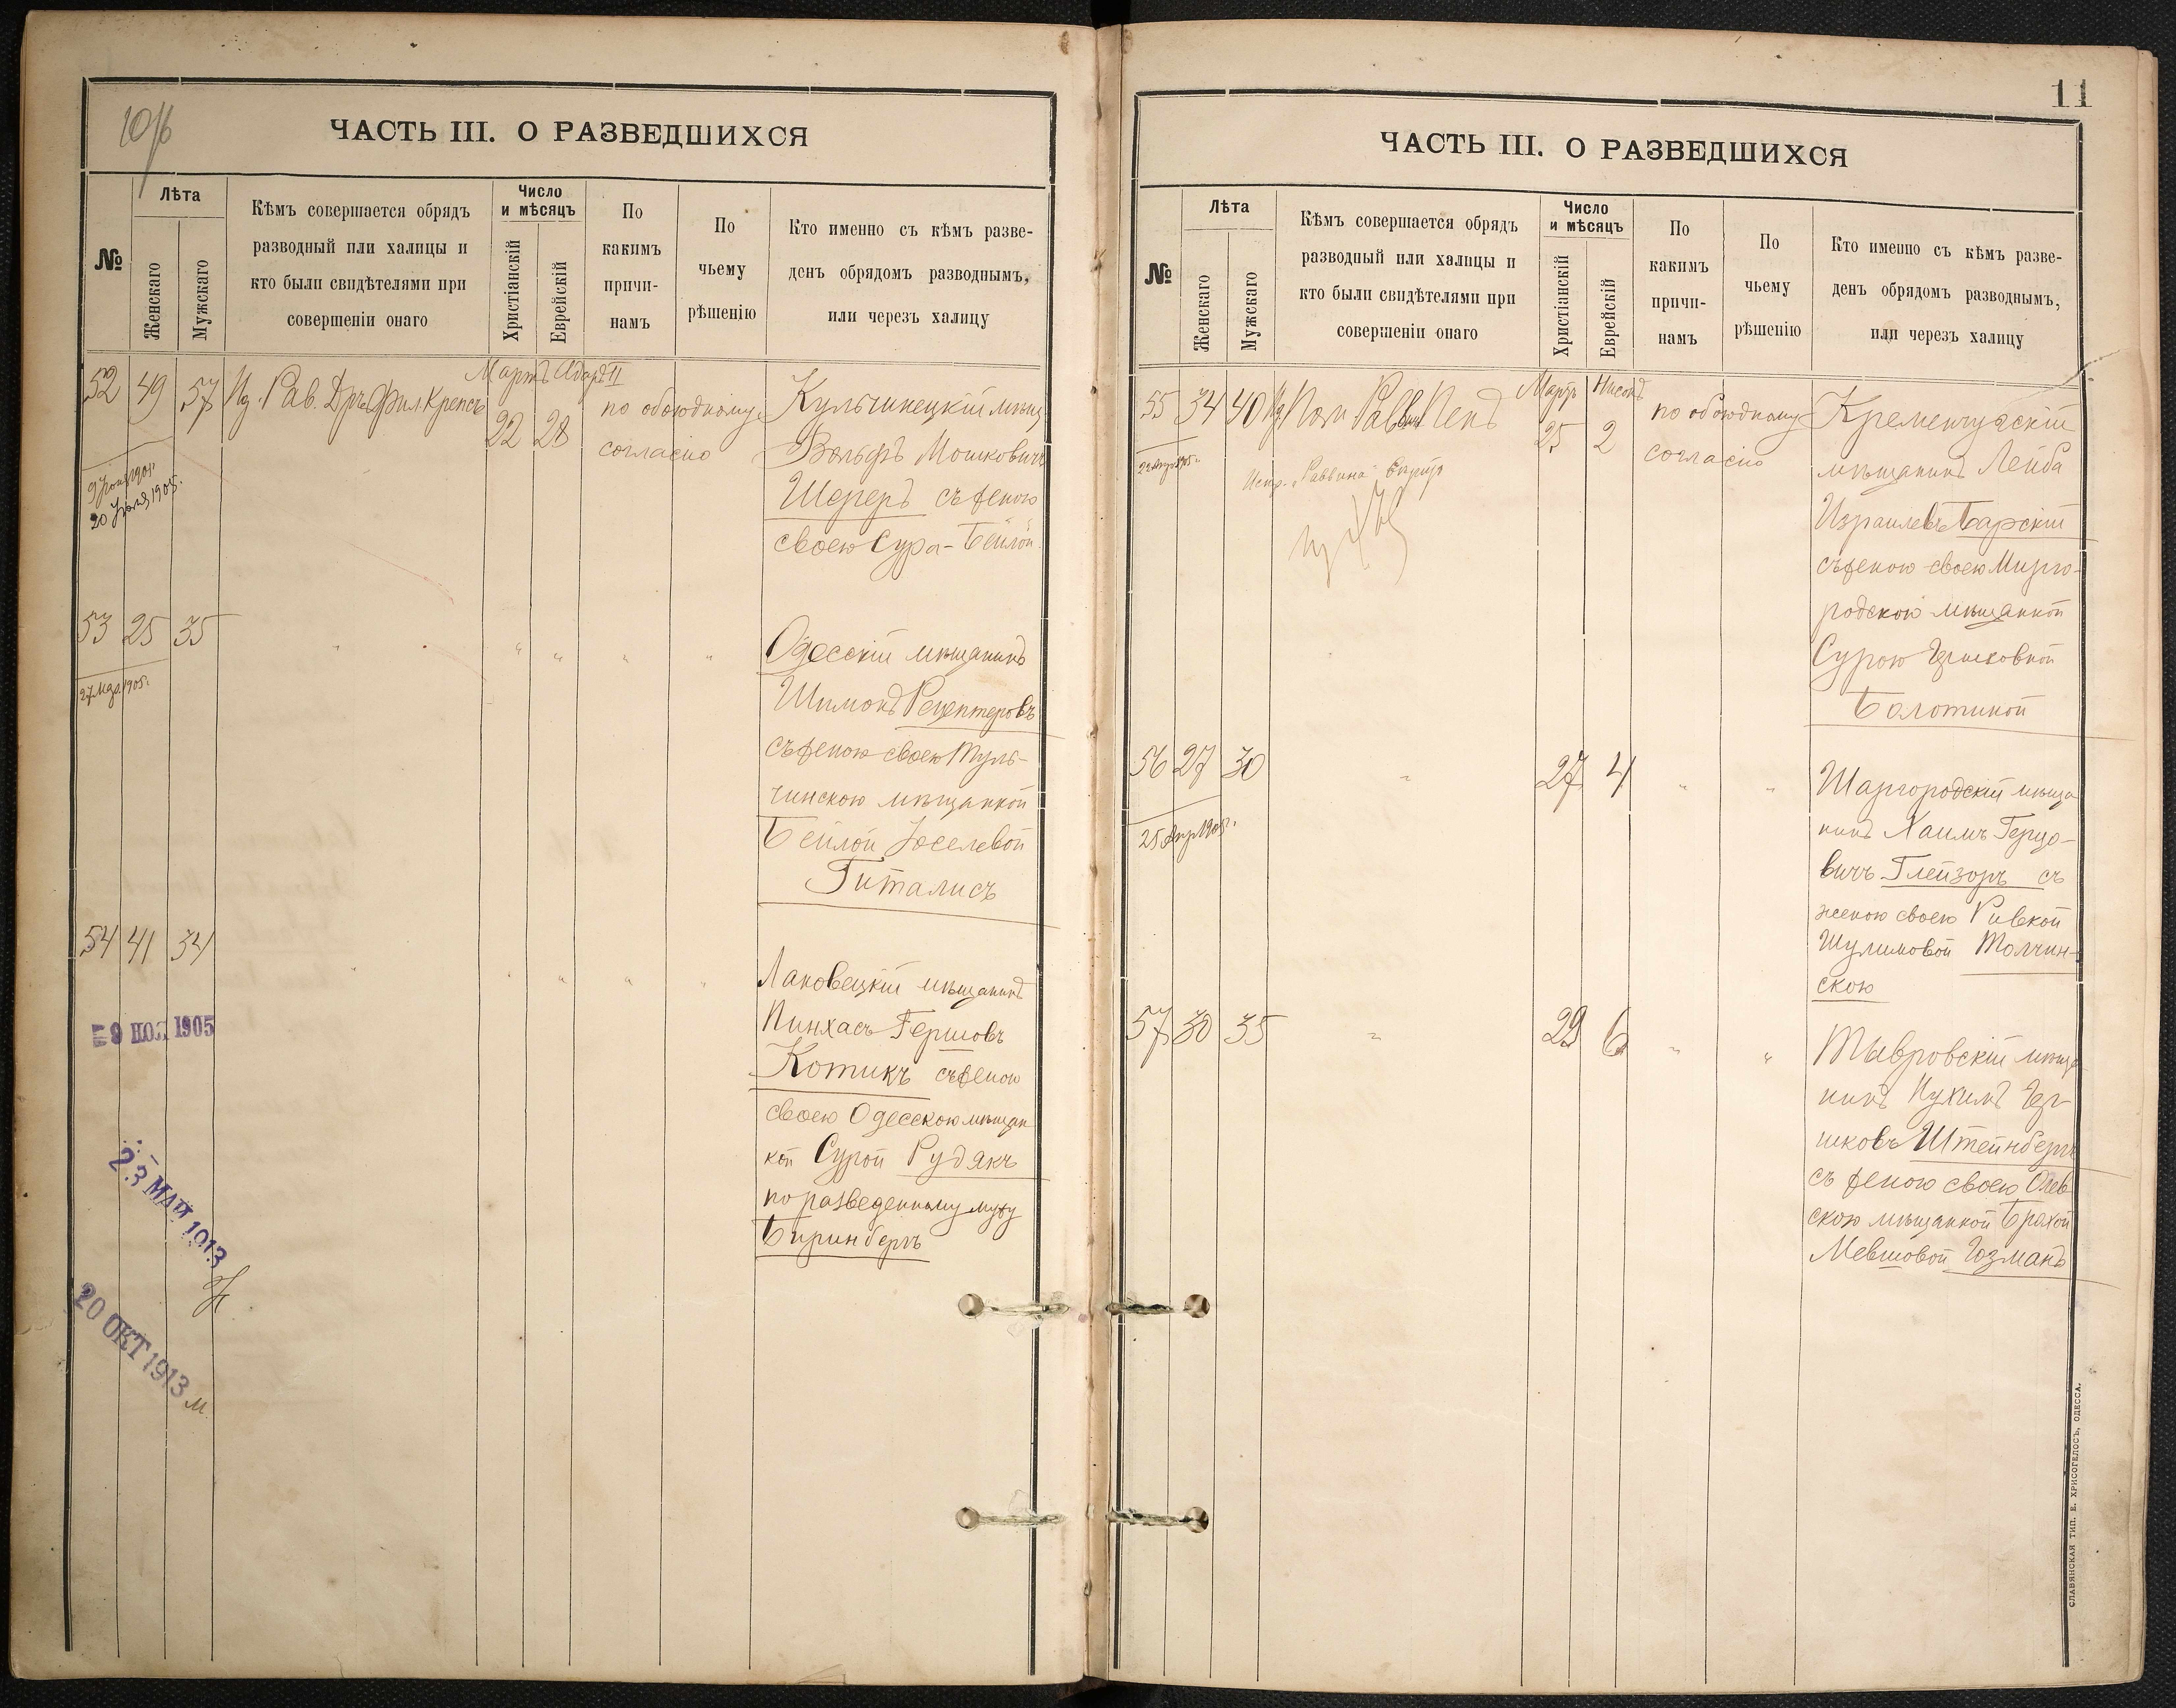 10/б
ЧАСТЬ III. О РАЗВЕДШИХСЯ
№
Лѣта
Женскаго
Мужскаго
Кѣмъ совершается обрядъ
разводный или халицы и
кто были свидѣтелями при
совершеніи онаго
Число
и мѣсяцъ
Христіанскій
Еврейскій
По
какимъ
причи-
намъ
По
чьему
рѣшенію
Кто именно съ кѣмъ разве-
денъ обрядомъ разводнымъ,
или черезъ халицу
Мартъ Адаръ II
52 49 57 Рав. Дръ Фил. Крепсъ 22 28
по обоюдному
согласію
Кульчинецкій мѣщ
Вольфъ Мошковичъ
Шереръ съ женою
своею Сура-Бейлой
20 Іюля 1905г.
53 25 35 " " " " "
27 Мая 1905г.
Одесскій мѣщанинъ
Шимонъ Рецептеровъ
съ женою своею Туль-
чинскою мѣщанкой
Бейлой Іоселевой
Гиталисъ
54 41 34 " " " " "
Лановецкій мѣщанинъ
Пинхасъ Гершовъ
Котикъ съ женою
своею Одесскою мѣщан
кой Сурой Рудякъ
по разведенному мужу
Биринбергъ
9 НОЯ 1905
23 МАЯ 1913
20 ОКТ 1913
11
ЧАСТЬ III. О РАЗВЕДШИХСЯ
№
Лѣта
Женскаго
Мужскаго
Кѣмъ совершается обрядъ
разводный или халицы и
кто были свидѣтелями при
совершеніи онаго
Число
и мѣсяцъ
Христіанскій
Еврейскій
По
какимъ
причи-
намъ
По
чьему
рѣшенію
Кто именно съ кѣмъ разве-
денъ обрядомъ разводнымъ,
или черезъ халицу
Мартъ Нисонъ
55 34 40 Пом Раввин Пенъ 25 2
по обоюдному
согласію
Испр. "Раввина"
Кременчугскій
мѣщанинъ Лейба
Израилевъ Барскій
съ женою своею Мирго-
родскою мѣщанкой
Сурою Гершковной
Болотиной
56 27 30 " 27 4 " "
25 Апр 1905г.
Шаргородскій мѣща
нинъ Хаимъ Герцо-
вичъ Глейзоръ съ
женою своею Ривкой
Шулимовой Толчин-
скою
57 30 35 " 29 6 " "
Тывровскій мѣща
нинъ Нухимъ Гер-
шковъ Штейнбергъ
съ женою своею Олев
скою мѣщанкой Брахой
Мевшовой Гозманъ
СЛАВЯНСКАЯ ТИП. Е. ХРИСОГЕЛОСЪ, ОДЕССА.